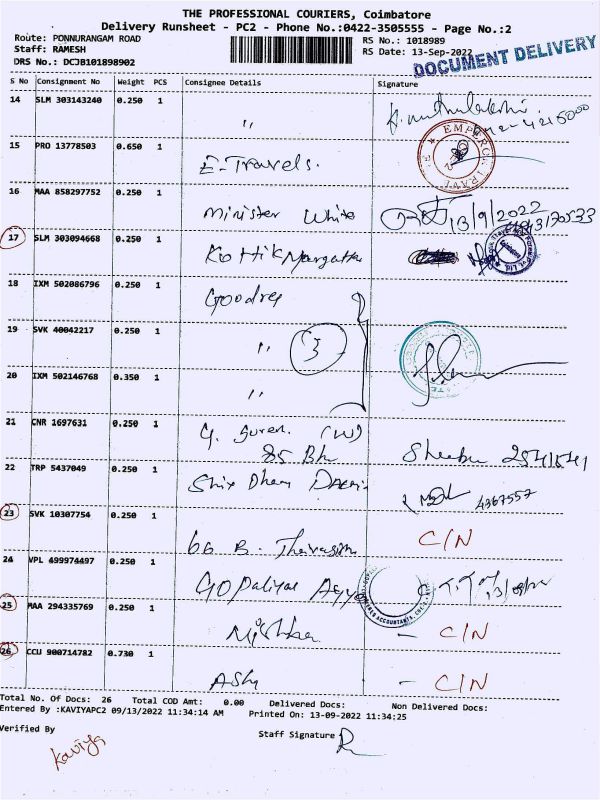 THE PROFESSIONAL COURIERS, Coimbatore
Delivery Runsheet - PC2 - Phone No.:0422-3505555 - Page No.:2
Route: PONNURANGAM ROAD
RS No.: 1018989
Staff: RAMESH
RS Date: 13-Sep-2022
DRS No.: DCJB101898902
DOCUMENT DELIVERY
S No Consignment No Weight PCS Consignee Details Signature
14 SLM 303143240 0.250 1
"
15 PRO 13778503 0.650 1
E-Travels.
16 MAA 858297752 0.250 1
Minister White 13/9/2022
17 SLM 303094668 0.250 1
18 IXM 502086796 0.250 1
19 SVK 40042217 0.250 1
" 3
20 IXM 502146768 0.350 1
"
21 CNR 1697631 0.250 1
G. Suren. (W)
22 TRP 5437049 0.250 1
4367557
23 SVK 10307754 0.250 1 C/N
24 VPL 499974497 0.250 1
25 MAA 294335769 0.250 1
- C/N
26 CCU 900714782 0.730 1
- C/N
Total No. Of Docs: 26 Total COD Amt: 0.00 Delivered Docs: Non Delivered Docs:
Entered By :KAVIYAPC2 09/13/2022 11:34:14 AM Printed On: 13-09-2022 11:34:25
Verified By
Staff Signature
Kaviya